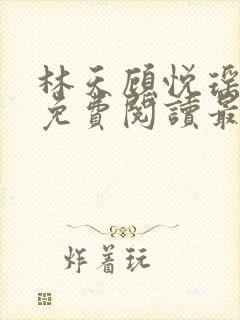 林天顾悦瑶
免費閱讀最
炸着玩